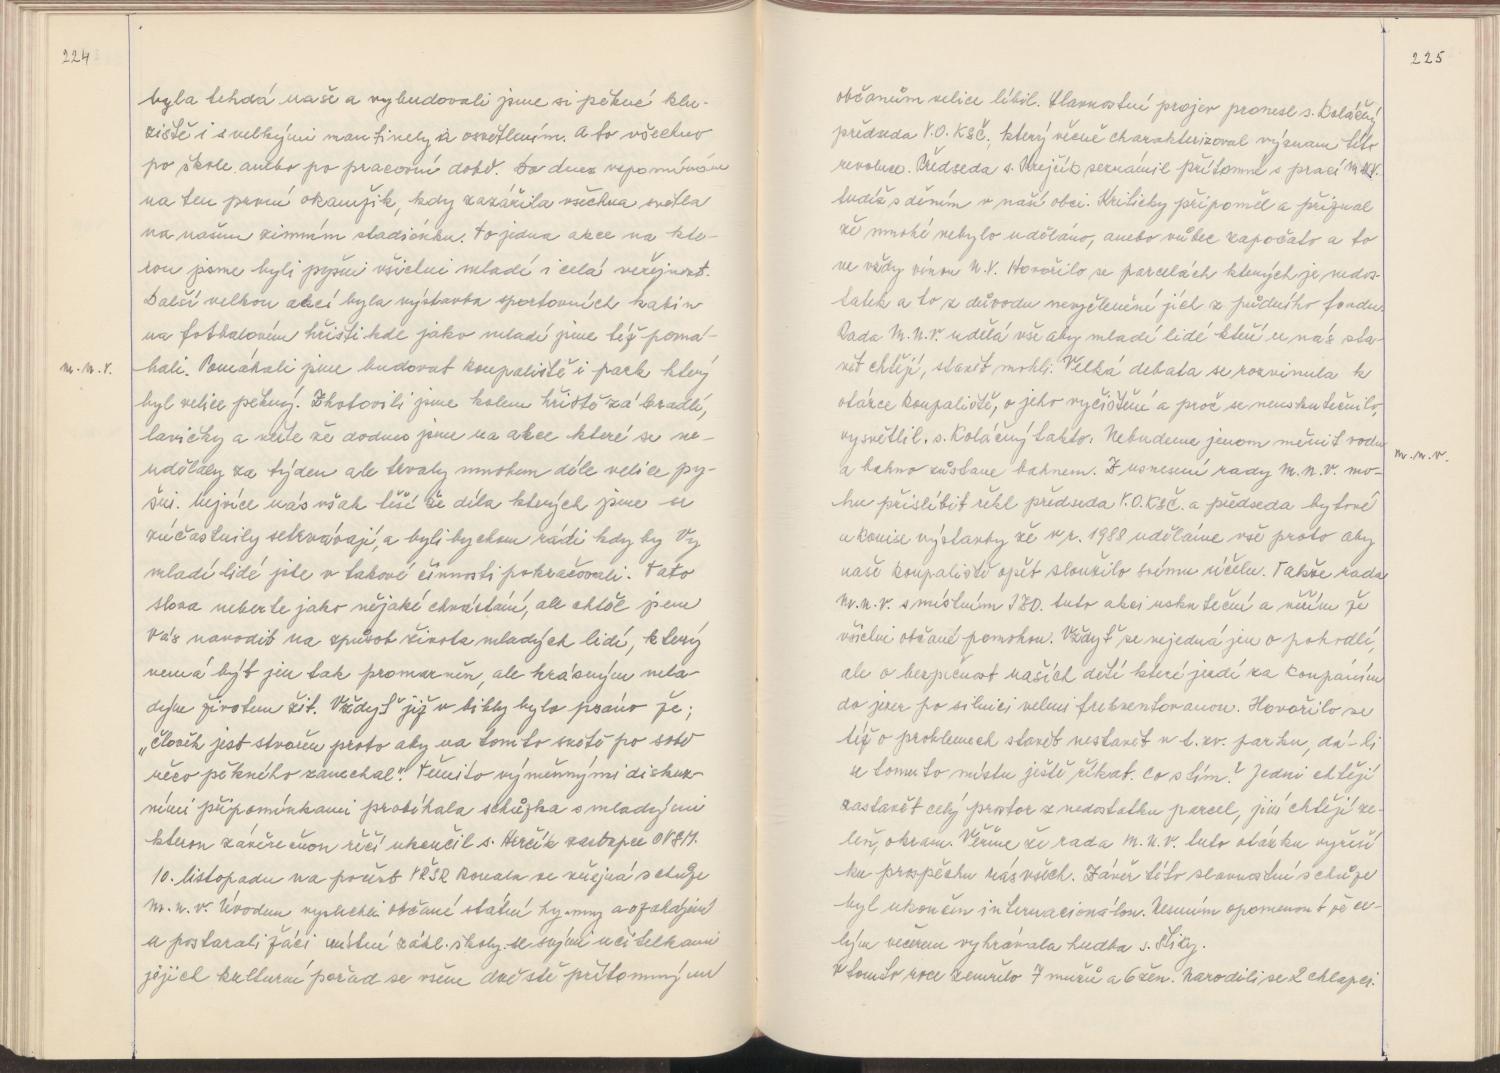 224
byla tehdá naše a vybudovali jsme si pěkné klu-
ziště i s velkými mantinely a osvětlením. A to všechno
po škole anebo po pracovní době. Do dnes vzpomínám
na ten první okamžik, kdy zazářila všechna světla
na našem zimním stadiónku. To jedna akce na kte-
rou jsme byli pyšni všichni mladí i celá veřejnost.
Další velkou akcí byla výstavba sportovních kabin
na fotbalovém hřišti kde jako mladí jsme též pomá-
m.n.v.
hali. Pomáhali jsme budovat koupaliště i park který
byl velice pěkný. Zhotovili jsme kolem hřiště zábradlí,
lavičky a věřte že dodnes jsme na akce které se ne-
udělaly za týden ale trvaly mnohem déle velice py-
šni. Nejvíce nás však těší že díla kterých jsme se
zúčastnily setrvávají, a byli bychom rádi kdy by Vy
mladí lidé jste v takové činnosti pokračovali. Tato
slova neberte jako nějaké chvástání, ale chtěl jsem
Vás navodit na způsob života mladých lidí, který
nemá být jen tak promarněn, ale krásným mla-
dým životem žít. Vždyť již v bibly bylo psáno že;
„člověk jest stvořen proto aby na tomto světě po sobě
něco pěkného zanechal". Těmito výměnnými diskuz-
ními připomínkami probíhala schůzka s mladými
kterou závěrečnou řečí ukončil s. Herčík zástupce OV SSM.
10. listopadu na počest VŘSR konala se veřejná schůze
M.n.v. Úvodem vyslechli občané státní hymny a o zahájení
se postarali žáci místní zákl. školy se svými učitelkami
jejich kulturní pořad se všem dvě stě přítomným
225
občanům velice líbil. Slavnostní projev pronesl s. Koláčný
předseda V.O. KSČ., který věcně charakterizoval význam této
revoluce. Předseda s. Krejčí seznámil přítomné s prací M.N.V.
tudíž s děním v naší obci. Kriticky připoměl a přiznal
že mnohé nebylo uděláno, anebo vůbec započato a to
ne vždy vinou N.V. Hovořilo se parcelách kterých je nedos-
tatek a to z důvodu nevyčlenění jich z půdního fondu.
Rada M.N.V. udělá vše aby mladí lidé kteří u nás sta-
vět chtějí, stavět mohli. Velká debata se rozvinula k
otázce koupaliště, o jeho vyčištění a proč se neuskutečnilo,
vysvětlil s. Koláčný takto. Nebudeme jenom měnit vodu
m.n.v.
a bahno zůstane bahnem. Z usnesení rady m.n.v. mo-
hu přislíbit řekl předseda V.O. KSČ. a předseda bytové
a komise výstavby že v r. 1988 uděláme vše proto aby
naše koupaliště opět sloužilo svému účelu. Takže rada
m.n.v. s místním JZD. tuto akci uskuteční a věřím že
všichni občané pomohou. Vždyť se nejedná jen o pohodlí,
ale o bezpečnost našich dětí které jezdí za koupáním
do jezer po silnici velmi frekventovanou. Hovořilo se
též o problemech stavět nestavět v t. zv. parku, dá-li
se tomuto místu ještě říkat. Co s tím? Jedni chtějí
zastavět celý prostor z nedostatku parcel, jiní chtějí ze-
leň, okrasu. Věřme že rada m.n.v. tuto otázku vyřeší
ku prospěchu nás všech. Závěr této slavnostní schůze
byl ukončen internacionálou. Nesmím opomenout že ce-
lým večerem vyhrávala hudba s.
V tomto roce zemřelo 7 mužů a 6 žen. Narodili se 2 chlapci.